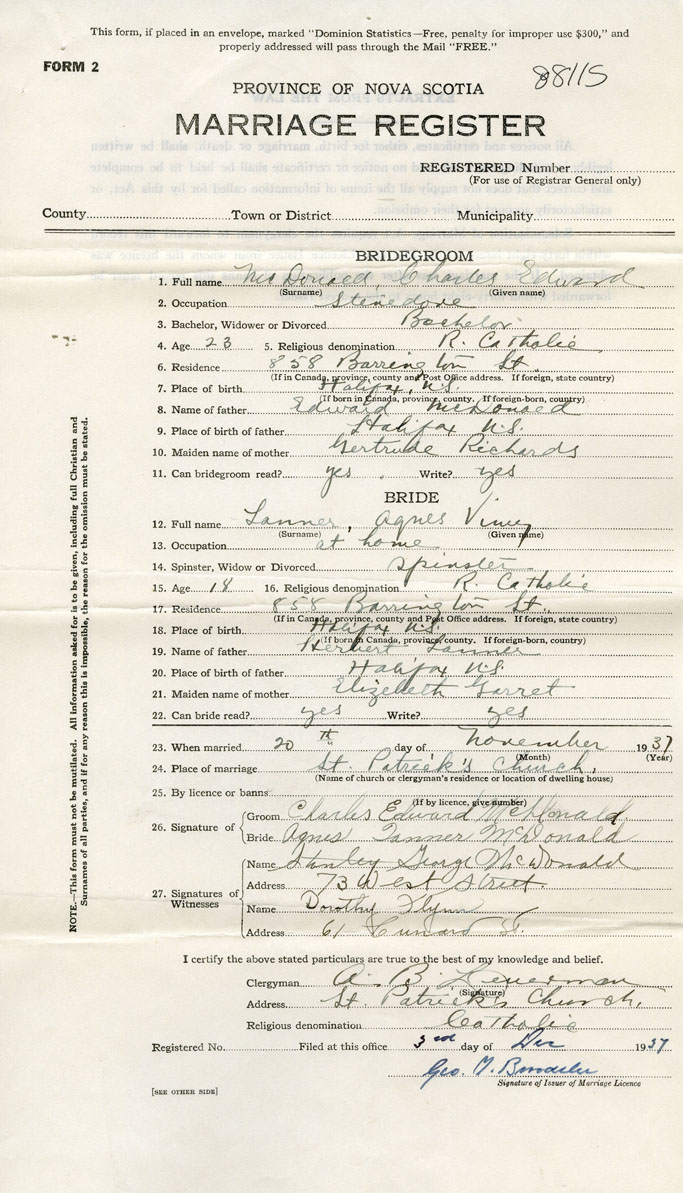 This form, if placed in an envelope, marked "Dominion Statistics—Free, penalty for improper use $300," and
properly addressed will pass through the Mail "FREE."
FORM 2
88115
PROVINCE OF NOVA SCOTIA
MARRIAGE REGISTER
REGISTERED Number
(For use of Registrar General only)
County Town or District Municipality
BRIDEGROOM
1. Full name McDonald, Charles Edward
(Surname) (Given name)
2. Occupation Stevedore
3. Bachelor, Widower or Divorced Bachelor
4. Age 23 5. Religious denomination R. Catholic
6. Residence 858 Barrington St.
(If in Canada, province, county and Post Office address. If foreign, state country)
7. Place of birth Halifax, N.S.
(If born in Canada, province, county. If foreign-born, country)
8. Name of father Edward McDonald
9. Place of birth of father Halifax N.S.
10. Maiden name of mother Gertrude Richards
11. Can bridegroom read? yes. Write? yes
BRIDE
12. Full name Tanner, Agnes
(Surname) (Given name)
13. Occupation at home
14. Spinster, Widow or Divorced Spinster
15. Age 18 16. Religious denomination R. Catholic
17. Residence 858 Barrington St.
(If in Canada, province, county and Post Office address. If foreign, state country)
18. Place of birth Halifax N.S.
(If born in Canada, province, county. If foreign-born, country)
19. Name of father Herbert Tanner
20. Place of birth of father Halifax N.S.
21. Maiden name of mother Elizabeth Garret
22. Can bride read? yes Write? yes
23. When married 20th day of November 1937
(Month) (Year)
24. Place of marriage St. Patrick's Church,
(Name of church or clergyman's residence or location of dwelling house)
25. By licence or banns
(If by licence, give number)
26. Signature of
Groom Charles Edward McDonald
Bride Agnes Tanner McDonald
27. Signatures of Witnesses
Name Stanley George McDonald
Address 73 West Street.
Name Dorothy Flynn
Address 61 Cunard St.
I certify the above stated particulars are true to the best of my knowledge and belief.
Clergyman A. B.
(Signature)
Address St. Patrick's Church,
Religious denomination Catholic
Registered No. Filed at this office 3rd day of Dec 1937
Geo.
Signature of Issuer of Marriage Licence
[SEE OTHER SIDE]
NOTE.—This form must not be mutilated. All information asked for is to be given, including full Christian and
Surnames of all parties, and if for any reason this is impossible, the reason for the omission must be stated.